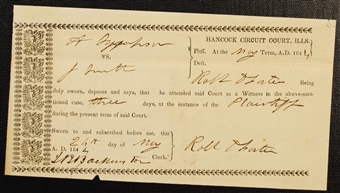 HANCOCK CIRCUIT COURT, ILLS.
vs.
Plff. At the May Term, A.D. 184
Deft.
J Smith
Being
duly sworn, deposes and says, that he attended said Court as a Witness in the above-men-
tioned case, three days, at the instance of the Plaintiff
during the present term of said Court.
Sworn to and subscribed before me, this
24th day of May
A. D. 184
Clerk.